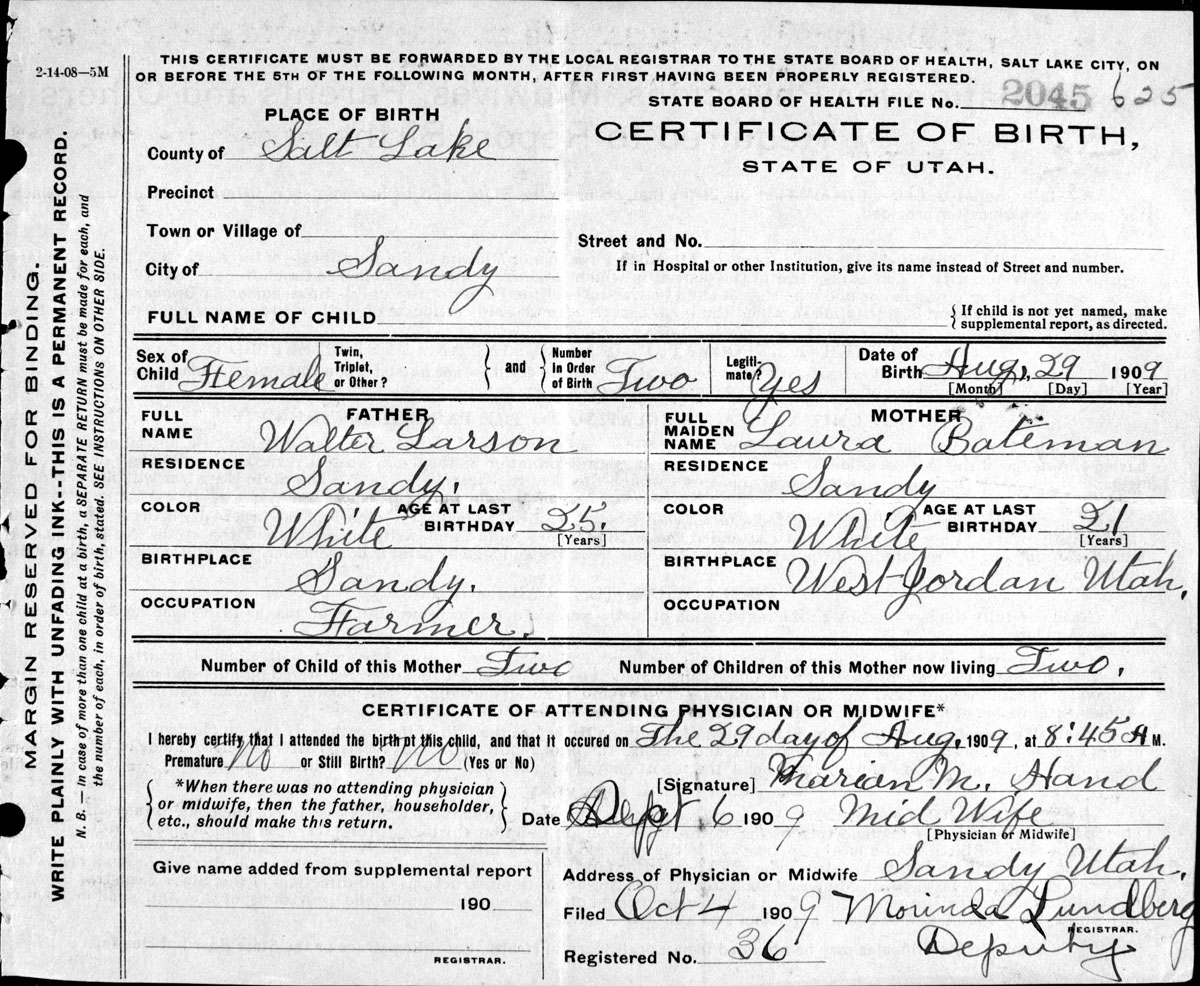 2-14-08—5M
THIS CERTIFICATE MUST BE FORWARDED BY THE LOCAL REGISTRAR TO THE STATE BOARD OF HEALTH, SALT LAKE CITY, ON
OR BEFORE THE 5TH OF THE FOLLOWING MONTH, AFTER FIRST HAVING BEEN PROPERLY REGISTERED.
STATE BOARD OF HEALTH FILE No. 2045 625
PLACE OF BIRTH
CERTIFICATE OF BIRTH,
STATE OF UTAH.
County of Salt Lake
Precinct
Town or Village of
Street and No.
City of Sandy
If in Hospital or other Institution, give its name instead of Street and number.
FULL NAME OF CHILD
{ If child is not yet named, make
supplemental report, as directed.
Sex of Child Female
Twin, Triplet, or Other? } and { Number In Order of Birth Two
Legiti- mate? Yes
Date of Birth Aug. 29 1909
[Month] [Day] [Year]
FATHER
FULL NAME Walter Larson
RESIDENCE Sandy.
COLOR White AGE AT LAST BIRTHDAY 25. [Years]
BIRTHPLACE Sandy.
OCCUPATION Farmer.
MOTHER
FULL MAIDEN NAME Laura Bateman
RESIDENCE Sandy
COLOR White AGE AT LAST BIRTHDAY 21 [Years]
BIRTHPLACE West Jordan Utah.
OCCUPATION
Number of Child of this Mother Two Number of Children of this Mother now living Two.
CERTIFICATE OF ATTENDING PHYSICIAN OR MIDWIFE*
I hereby certify that I attended the birth of this child, and that it occured on The 29 day of Aug. 1909, at 8:45 A M.
Premature No or Still Birth? No (Yes or No)
{ *When there was no attending physician
or midwife, then the father, householder,
etc., should make this return. }
[Signature] Marian M. Hand
Date Sept 6 1909 Mid Wife
[Physician or Midwife]
Give name added from supplemental report
190
REGISTRAR.
Address of Physician or Midwife Sandy Utah.
Filed Oct 4 1909 Morinda Lundberg
REGISTRAR.
Registered No. 36 Deputy
MARGIN RESERVED FOR BINDING.
WRITE PLAINLY WITH UNFADING INK--THIS IS A PERMANENT RECORD.
N. B. — In case of more than one child at a birth, a SEPARATE RETURN must be made for each, and
the number of each, in order of birth, stated. SEE INSTRUCTIONS ON OTHER SIDE.